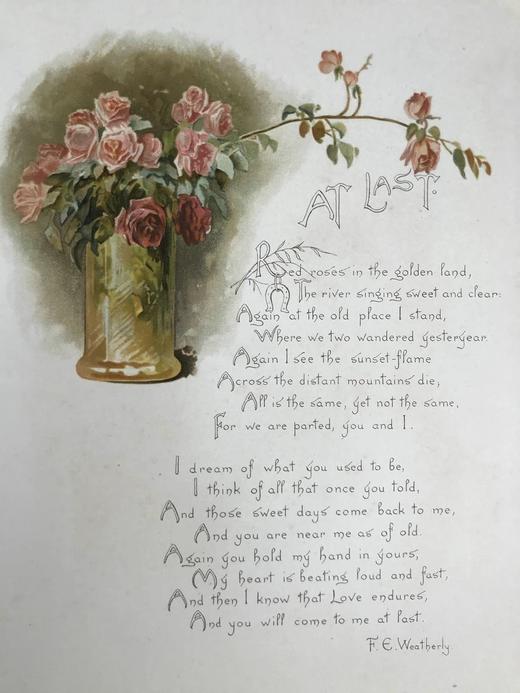 AT LAST.
Red roses in the golden land,
The river singing sweet and clear:
Again at the old place I stand,
Where we two wandered yesteryear.
Again I see the sunset-flame
Across the distant mountains die,
All is the same, yet not the same,
For we are parted, you and I.
I dream of what you used to be,
I think of all that once you told,
And those sweet days come back to me,
And you are near me as of old.
Again you hold my hand in yours,
My heart is beating loud and fast,
And then I know that Love endures,
And you will come to me at last.
F. E. Weatherly